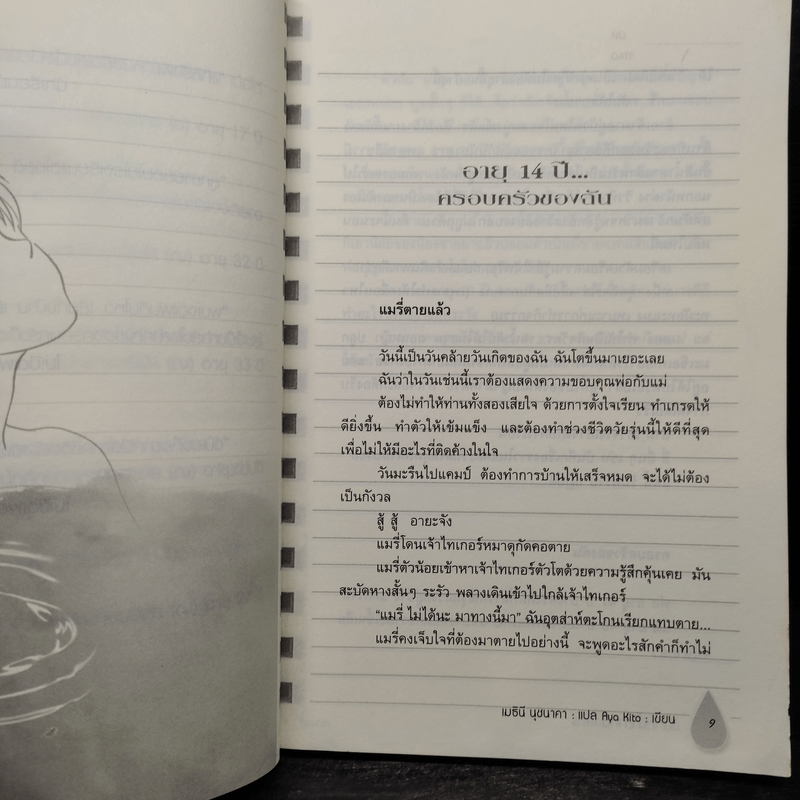 อายุ 14 ปี...
ครอบครัวของฉัน
แมรี่ตายแล้ว
วันนี้เป็นวันคล้ายวันเกิดของฉัน ฉันโตขึ้นมาเยอะเลย
ฉันว่าในวันเช่นนี้เราต้องแสดงความขอบคุณพ่อกับแม่
ต้องไม่ทำให้ท่านทั้งสองเสียใจ ด้วยการตั้งใจเรียน ทำเกรดให้
ดียิ่งขึ้น ทำตัวให้เข้มแข็ง และต้องทำช่วงชีวิตวัยรุ่นนี้ให้ดีที่สุด
เพื่อไม่ให้มีอะไรที่ติดค้างในใจ
วันมะรืนไปแคมป์ ต้องทำการบ้านให้เสร็จหมด จะได้ไม่ต้อง
เป็นกังวล
สู้ สู้ อายะจัง
แมรี่โดนเจ้าไทเกอร์หมาดุกัดคอตาย
แมรี่ตัวน้อยเข้าหาเจ้าไทเกอร์ตัวโตด้วยความรู้สึกคุ้นเคย มัน
สะบัดหางสั้นๆ ระรัว พลางเดินเข้าไปใกล้เจ้าไทเกอร์
“แมรี่ ไม่ได้นะ มาทางนี้มา” ฉันอุตส่าห์ตะโกนเรียกแทบตาย...
แมรี่คงเจ็บใจที่ต้องมาตายไปอย่างนี้ จะพูดอะไรสักคำก็ทำไม่
เมธินี นุชนาคา : แปล Aya Kito : เขียน 9